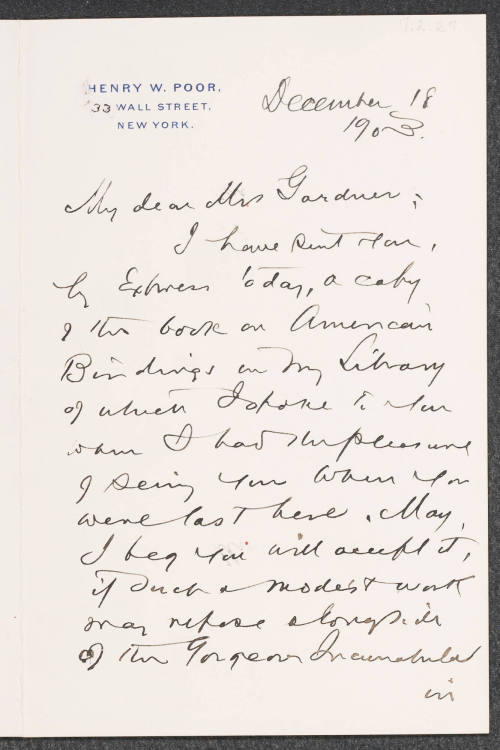 HENRY W. POOR,
33 WALL STREET,
NEW YORK.
December 18
1903.
My dear Mrs Gardner;
I have sent you,
by Express today, a copy
of the book on American
Bindings in my Library
of which I spoke to you
when I had the pleasure
of seeing you when you
were last here. May
I beg you will accept it,
if such a modest work
may repose alongside
of the Gorgeous Incunabula
in